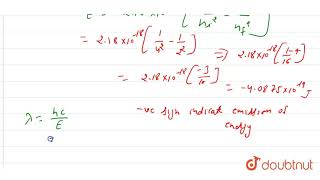 E = 2.18×10⁻¹⁸ [ 1/nᵢ² - 1/n_f² ]
= 2.18×10⁻¹⁸ [ 1/4² - 1/2² ] ⇒ 2.18×10⁻¹⁸ [ 1-4/16 ]
= 2.18×10⁻¹⁸ [ -3/16 ] = -4.0875×10⁻¹⁹ J
-ve sign indicate emission of
energy
λ = hc/E
doubtnut